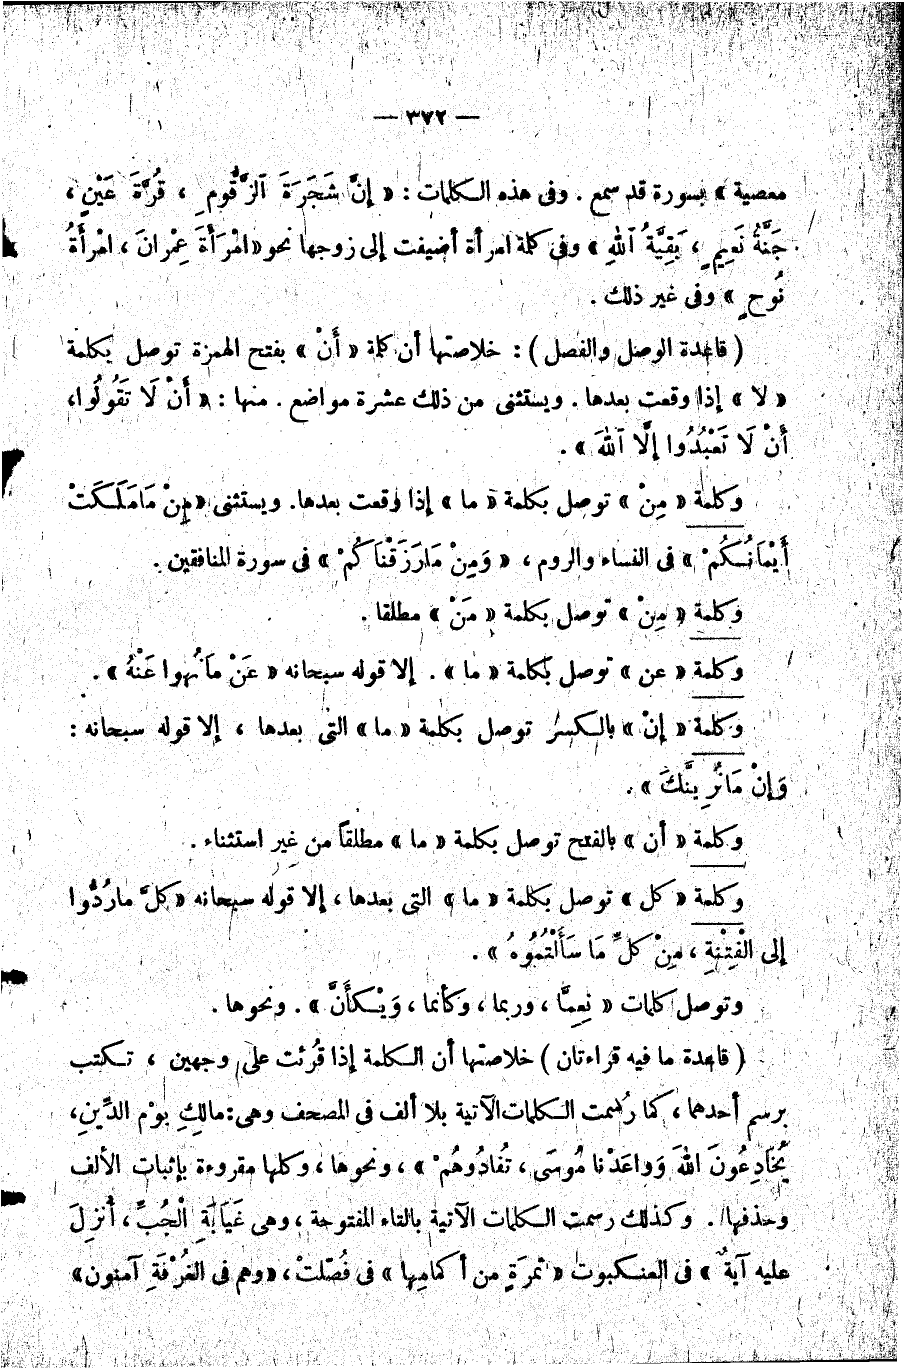 — ٣٧٢ —
معصية » بسورة قد سمع . وفى هذه الكلمات : « إِنَّ شَجَرَةَ ٱلزَّقُّومِ ، قُرَّةَ عَيْنٍ ،
جَنَّةُ نَعِيمٍ ، بَقِيَّةُ ٱللهِ » وفى كلمة امرأة أضيفت إلى زوجها نحو « امْرَأَةَ عِمْرانَ ، امْرأَةُ
نُوحٍ » وفى غير ذلك .
( قاعدة الوصل والفصل ) : خلاصتها أن كلمة « أَنْ » بفتح الهمزة توصل بكلمة
« لا » إذا وقعت بعدها . ويستثنى من ذلك عشرة مواضع . منها : « أَنْ لَا تَقُولُوا ،
أَنْ لَا تَعْبُدُوا إِلَّا ٱللهَ » .
وكلمة « مِنْ » توصل بكلمة « ما » إذا وقعت بعدها . ويستثنى « مِنْ مَامَلَكَتْ
أَيْمَانُكُمْ » فى النساء والروم ، « وَمِنْ مَارَزَقْنَاكُمْ » فى سورة المنافقين .
وكلمة « مِنْ » توصل بكلمة « مَنْ » مطلقا .
وكلمة « عن » توصل بكلمة « ما » . إلا قوله سبحانه « عَنْ مَانُهوا عَنْهُ » .
وكلمة « إِنْ » بالكسر توصل بكلمة « ما » التى بعدها ، إلا قوله سبحانه :
وَإِنْ مَانُرِيَنَّكَ » .
وكلمة « أن » بالفتح توصل بكلمة « ما » مطلقاً من غير استثناء .
وكلمة « كل » توصل بكلمة « ما » التى بعدها ، إلا قوله سبحانه « كلَّ مارُدُّوا
إلى الْفِتْنَةِ ، مِنْ كلِّ مَا سَأَلْتُمُوهُ » .
وتوصل كلمات « نِعِمَّا ، وربما ، وكأنما ، وَيْكَأَنَّ » . ونحوها .
( قاعدة ما فيه قراءتان ) خلاصتها أن الكلمة إذا قُرئت على وجهين ، تكتب
برسم أحدهما ، كما رُسمت الكلمات الآتية بلا ألف فى المصحف وهى : مالكِ يوْم الدِّينِ ،
يُخَادِعُونَ اللهَ وَواعَدْنا مُوسَى ، تُفادُوهُمْ » ، ونحوها ، وكلها مقروءة بإثبات الألف
وحذفها . وكذلك رسمت الكلمات الآتية بالتاء المفتوحة ، وهى غَيَابَةِ الْجُبِّ ، أُنزِلَ
عليه آيةٌ » فى العنكبوت « ثمرَةٍ من أكمامِها » فى فُصّلتْ ، « وهم فى الغُرْفَةِ آمنون »